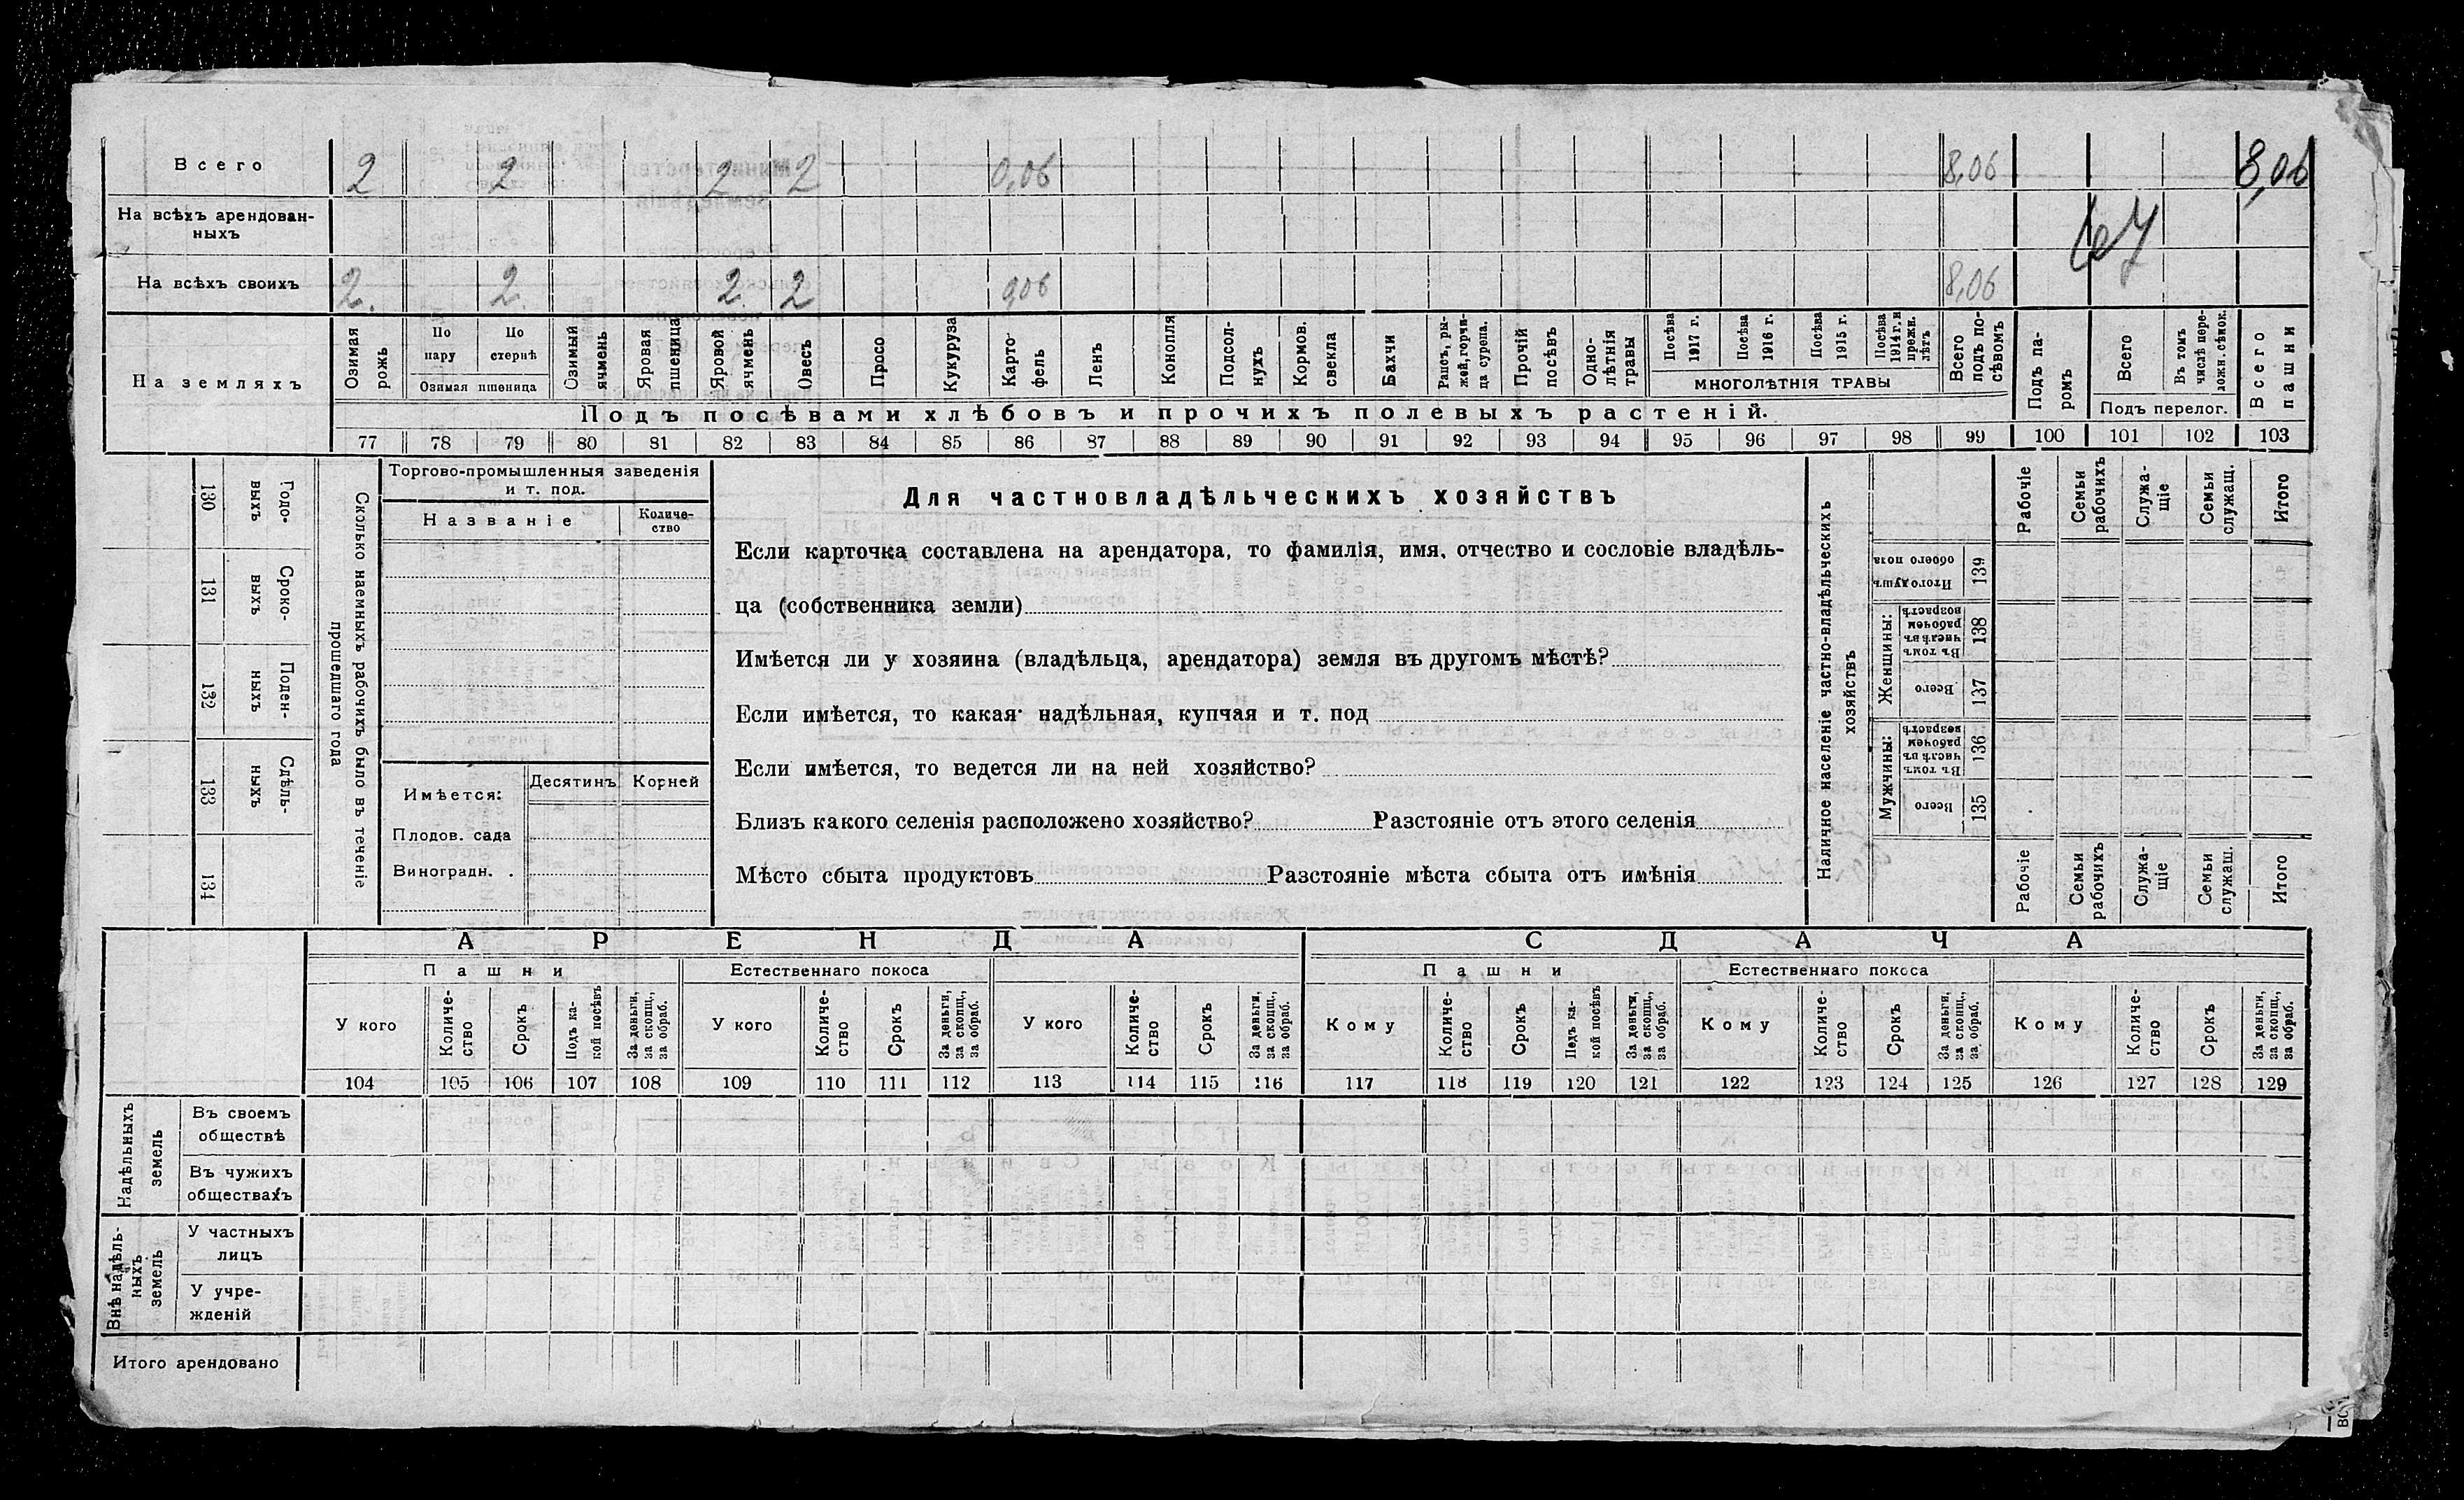 Всего 2 2 2 2 0,06 8,06 8,06
На всѣхъ арендован-
ныхъ
На всѣхъ своихъ 2. 2 2 2 0,06 8,06
На земляхъ
Озимая рожь
По пару
По стернѣ
Озимая пшеница
Озимый ячмень
Яровая пшеница
Яровой ячмень
Овесъ
Просо
Кукуруза
Карто-
фель
Ленъ
Конопля
Подсол-
нухъ
Кормов.
свекла
Бахчи
Рапсъ, ры-
жей, горчи-
ца сурепа.
Прочій
посѣвъ
Одно-
лѣтнія
травы
Посѣва
1917 г.
Посѣва
1916 г.
Посѣва
1915 г.
Посѣва
1914 г. и
прежн.
лѣтъ
МНОГОЛѢТНІЯ ТРАВЫ
Всего
подъ по-
сѣвомъ
Подъ па-
ромъ
Всего
Въ томъ
числѣ пере-
ложн. сѣнок.
Подъ перелог.
Всего
пашни
Подъ посѣвами хлѣбовъ и прочихъ полевыхъ растеній.
77 78 79 80 81 82 83 84 85 86 87 88 89 90 91 92 93 94 95 96 97 98 99 100 101 102 103
130 Годо-
выхъ
131 Сроко-
выхъ
132 Поден-
ныхъ
133 Сдѣль-
ныхъ
134
Сколько наемныхъ рабочихъ было въ теченіе
прошедшаго года
Торгово-промышленныя заведенія
и т. под.
Названіе
Количе-
ство
Имѣется:
Десятинъ
Корней
Плодов. сада
Виноградн. .
Для частновладѣльческихъ хозяйствъ
Если карточка составлена на арендатора, то фамилія, имя, отчество и сословіе владѣль-
ца (собственника земли)
Имѣется ли у хозяина (владѣльца, арендатора) земля въ другомъ мѣстѣ?
Если имѣется, то какая: надѣльная, купчая и т. под
Если имѣется, то ведется ли на ней хозяйство?
Близъ какого селенія расположено хозяйство? Разстояніе отъ этого селенія
Мѣсто сбыта продуктовъ Разстояніе мѣста сбыта отъ имѣнія
Наличное населеніе частно-владѣльческихъ
хозяйствъ
Рабочіе
Семьи
рабочихъ
Служа-
щіе
Семьи
служащ.
Итого
Итого душъ
обоего пола
139
Женщины:
Въ томъ
числѣ въ
рабочем
возрастѣ
138
Всего
137
Мужчины:
Въ томъ
числѣ въ
рабочем
возрастѣ
136
Всего
135
Рабочіе
Семьи
рабочихъ
Служа-
щіе
Семьи
служащ.
Итого
АРЕНДА
СДАЧА
Пашни
Естественнаго покоса
Пашни
Естественнаго покоса
У кого
Количе-
ство
Срокъ
Подъ ка-
кой посѣвъ
За деньги,
за скопщ.,
за обраб.
У кого
Количе-
ство
Срокъ
За деньги,
за скопщ.,
за обраб.
У кого
Количе-
ство
Срокъ
За деньги,
за скопщ.,
за обраб.
Кому
Количе-
ство
Срокъ
Подъ ка-
кой посѣвъ
За деньги,
за скопщ.,
за обраб.
Кому
Количе-
ство
Срокъ
За деньги,
за скопщ.,
за обраб.
Кому
Количе-
ство
Срокъ
За деньги,
за скопщ.,
за обраб.
104 105 106 107 108 109 110 111 112 113 114 115 116 117 118 119 120 121 122 123 124 125 126 127 128 129
Надѣльныхъ
земель
Въ своемъ
обществѣ
Въ чужихъ
обществахъ
Внѣ надѣль-
ныхъ
земель
У частныхъ
лицъ
У учре-
жденій
Итого арендовано